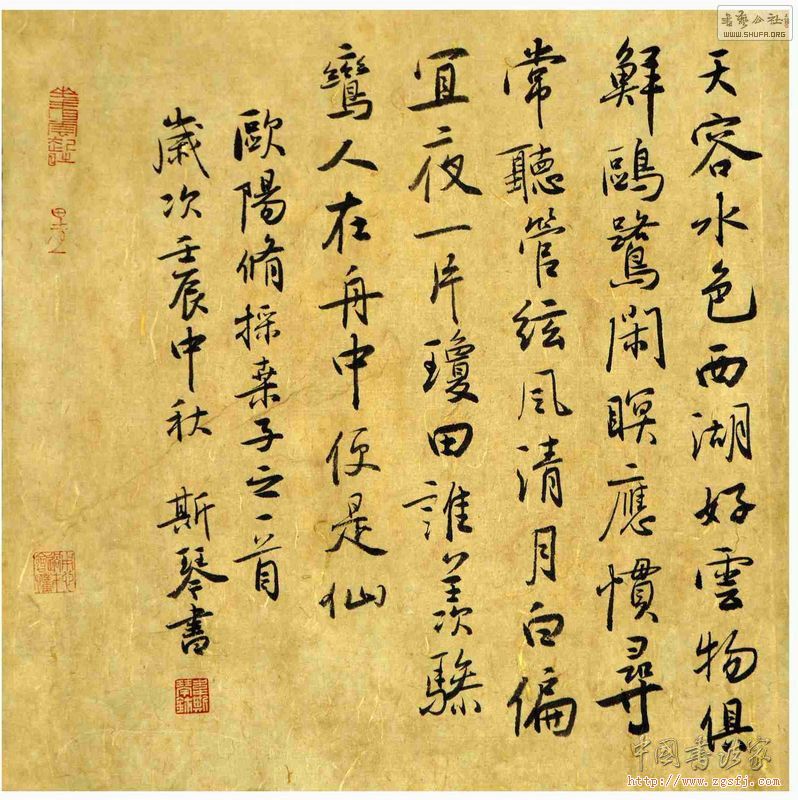 天容水色西湖好雲物俱
鮮鷗鷺閑眠應慣尋
常聽管絃風清月白偏
宜夜一片瓊田誰羨驂
鸞人在舟中便是仙
歐陽脩採桑子之一首
歲次壬辰中秋 斯琴書
書藝公社
WWW.SHUFA.ORG
中國書法家
http://www.zgsfj.com